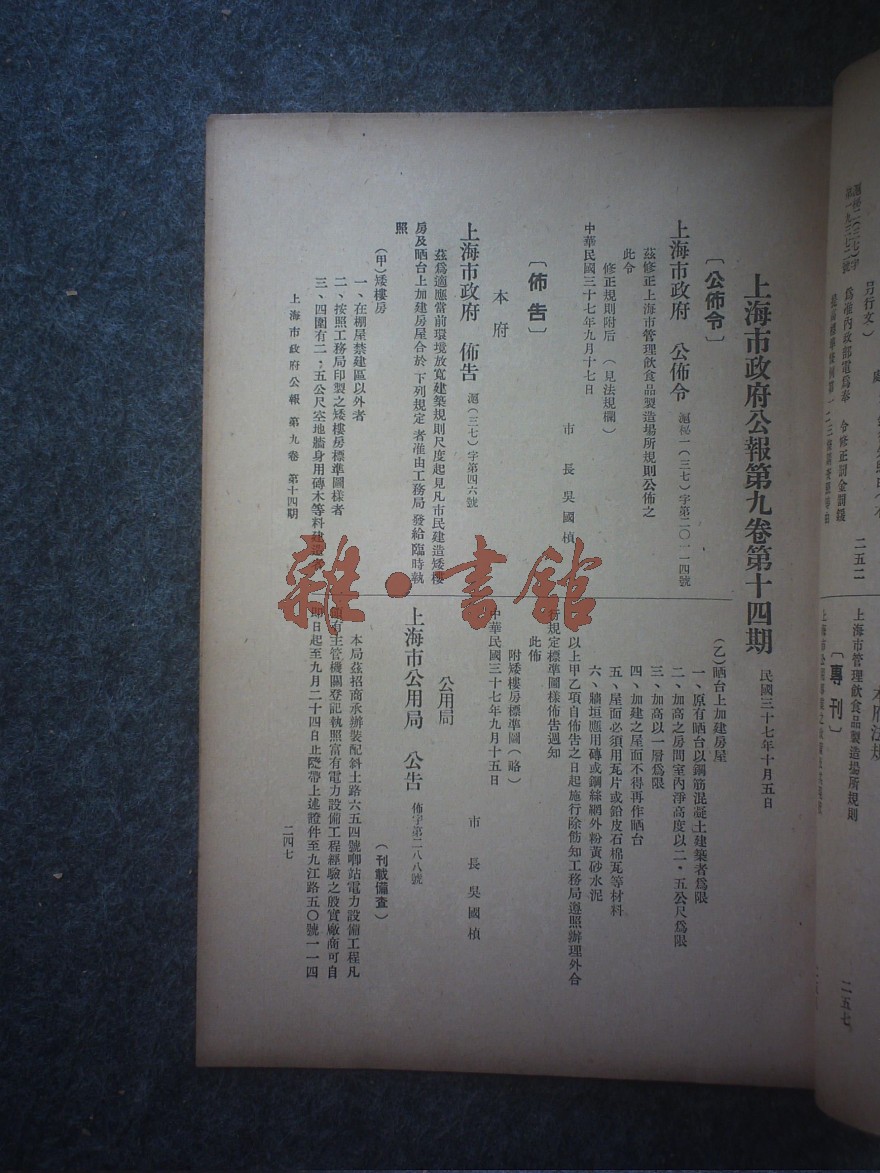 上海市政府公報第九卷第十四期
民國三十七年十月五日
〔公佈令〕
上海市政府 公佈令 滬秘一(三七)字第二〇一一四號
茲修正上海市管理飲食品製造場所規則公佈之
此令
修正規則附后 (見法規欄)
市長 吳國楨
中華民國三十七年九月十七日
〔佈告〕
本府
上海市政府 佈告 滬(三七)字第四六號
茲爲適應當前環境放寬建築規則尺度起見凡市民建造矮樓
房及晒台上加建房屋合於下列規定者准由工務局發給臨時執
照
(甲)矮樓房
一、在棚屋禁建區以外者
二、按照工務局印製之矮樓房標準圖樣者
三、四圍有二·五公尺空地牆身用磚木等料建造者
(乙)晒台上加建房屋
一、原有晒台以鋼筋混凝土建築者爲限
二、加高之房間室內淨高度以二·五公尺爲限
三、加高以一層爲限
四、加建之屋面不得再作晒台
五、屋面必須用瓦片或鉛皮石棉瓦等材料
六、牆垣應用磚或鋼絲網外粉黃砂水泥
以上甲乙項自佈告之日起施行除飭知工務局遵照辦理外合
行規定標準圖樣佈告週知
此佈
附矮樓房標準圖(略)
市長 吳國楨
中華民國三十七年九月十五日
公用局
上海市公用局 公告 佈字第二八八號
(刊載備查)
本局茲招商承辦裝配斜土路六五四號唧站電力設備工程凡
領有主管機關登記執照富有電力設備工程經驗之殷實廠商可自
即日起至九月二十四日止隨帶上述證件至九江路五〇號一一四
上海市政府公報 第九卷 第十四期
二四七
雜·書館
滬秘二(三七)字
爲准內政部電爲奉 令修正罰金罰鍰
二五二
上海市管理飲食品製造場所規則
〔專刊〕
二五七